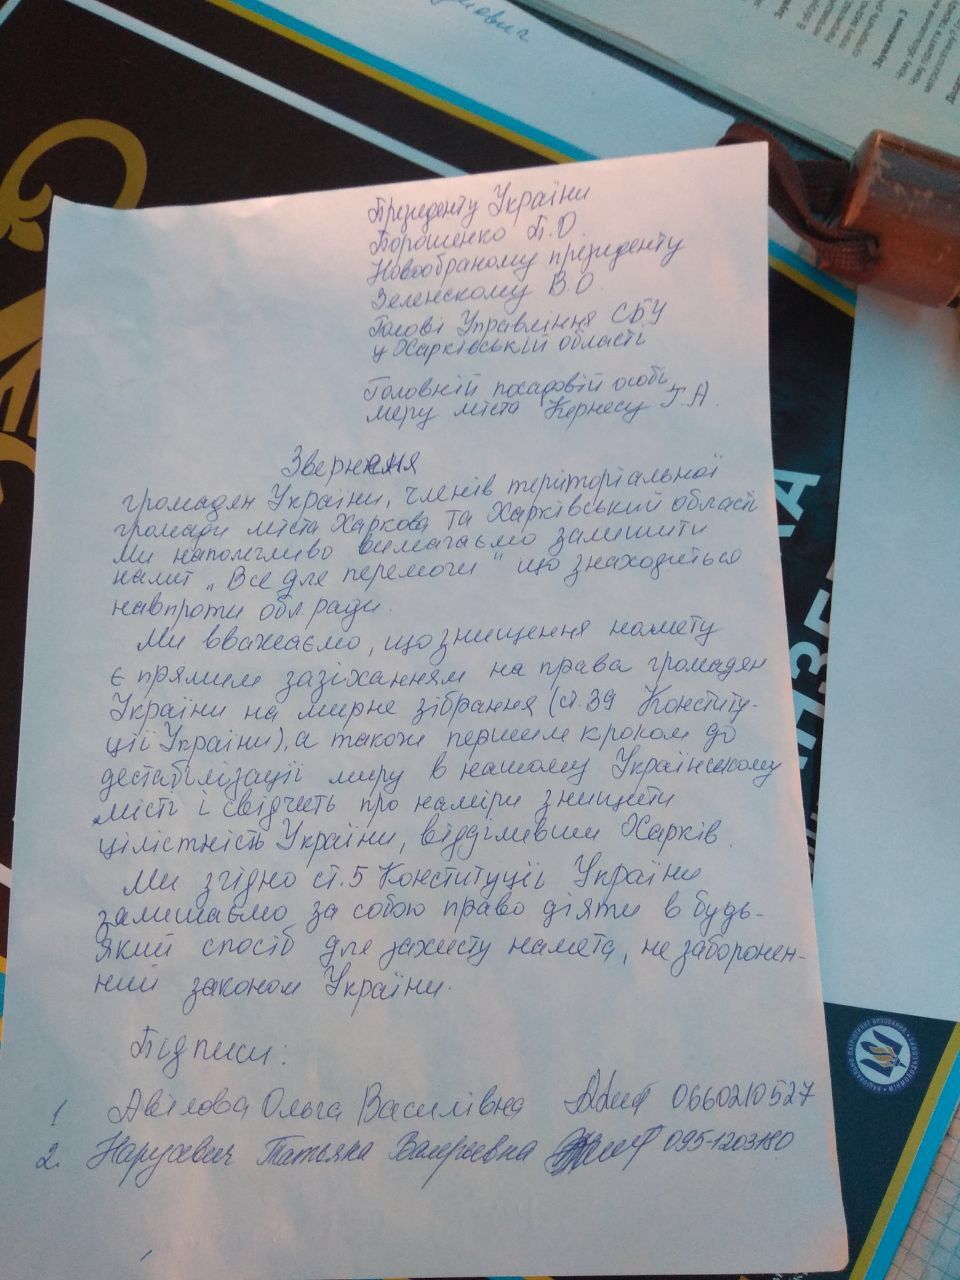 Президенту України
Порошенко П.О.
Новообраному президенту
Зеленскому В О.
Голові Управління СБУ
у Харківській області
Головній посадовій особі
меру міста Кернесу Г.А.
Звернення
громадян України, членів територіальної
громади міста Харкова та Харківський області
Ми наполегливо вимагаємо залишити
намит „Все для перемоги" що знаходиться
навпроти обл.ради.
Ми вважаємо, що знищення намету
є прямим зазіханням на права громадян
України на мирне зібрання (ст.39 Конститу-
ції України), а також першим кроком до
дестабілізації миру в нашому Українському
місті і свідчить про наміри знищити
цілістність України, відділивши Харків.
Ми згідно ст.5 Конституції України
залишаємо за собою право діяти в будь-
який спосіб для захисту намета, не заборонен-
ний законом України.
Підписи:
1 Авілова Ольга Василівна 0660210527
2. Нарусевич Татьяна Валерьевна 095-1203180
Зауваження 3